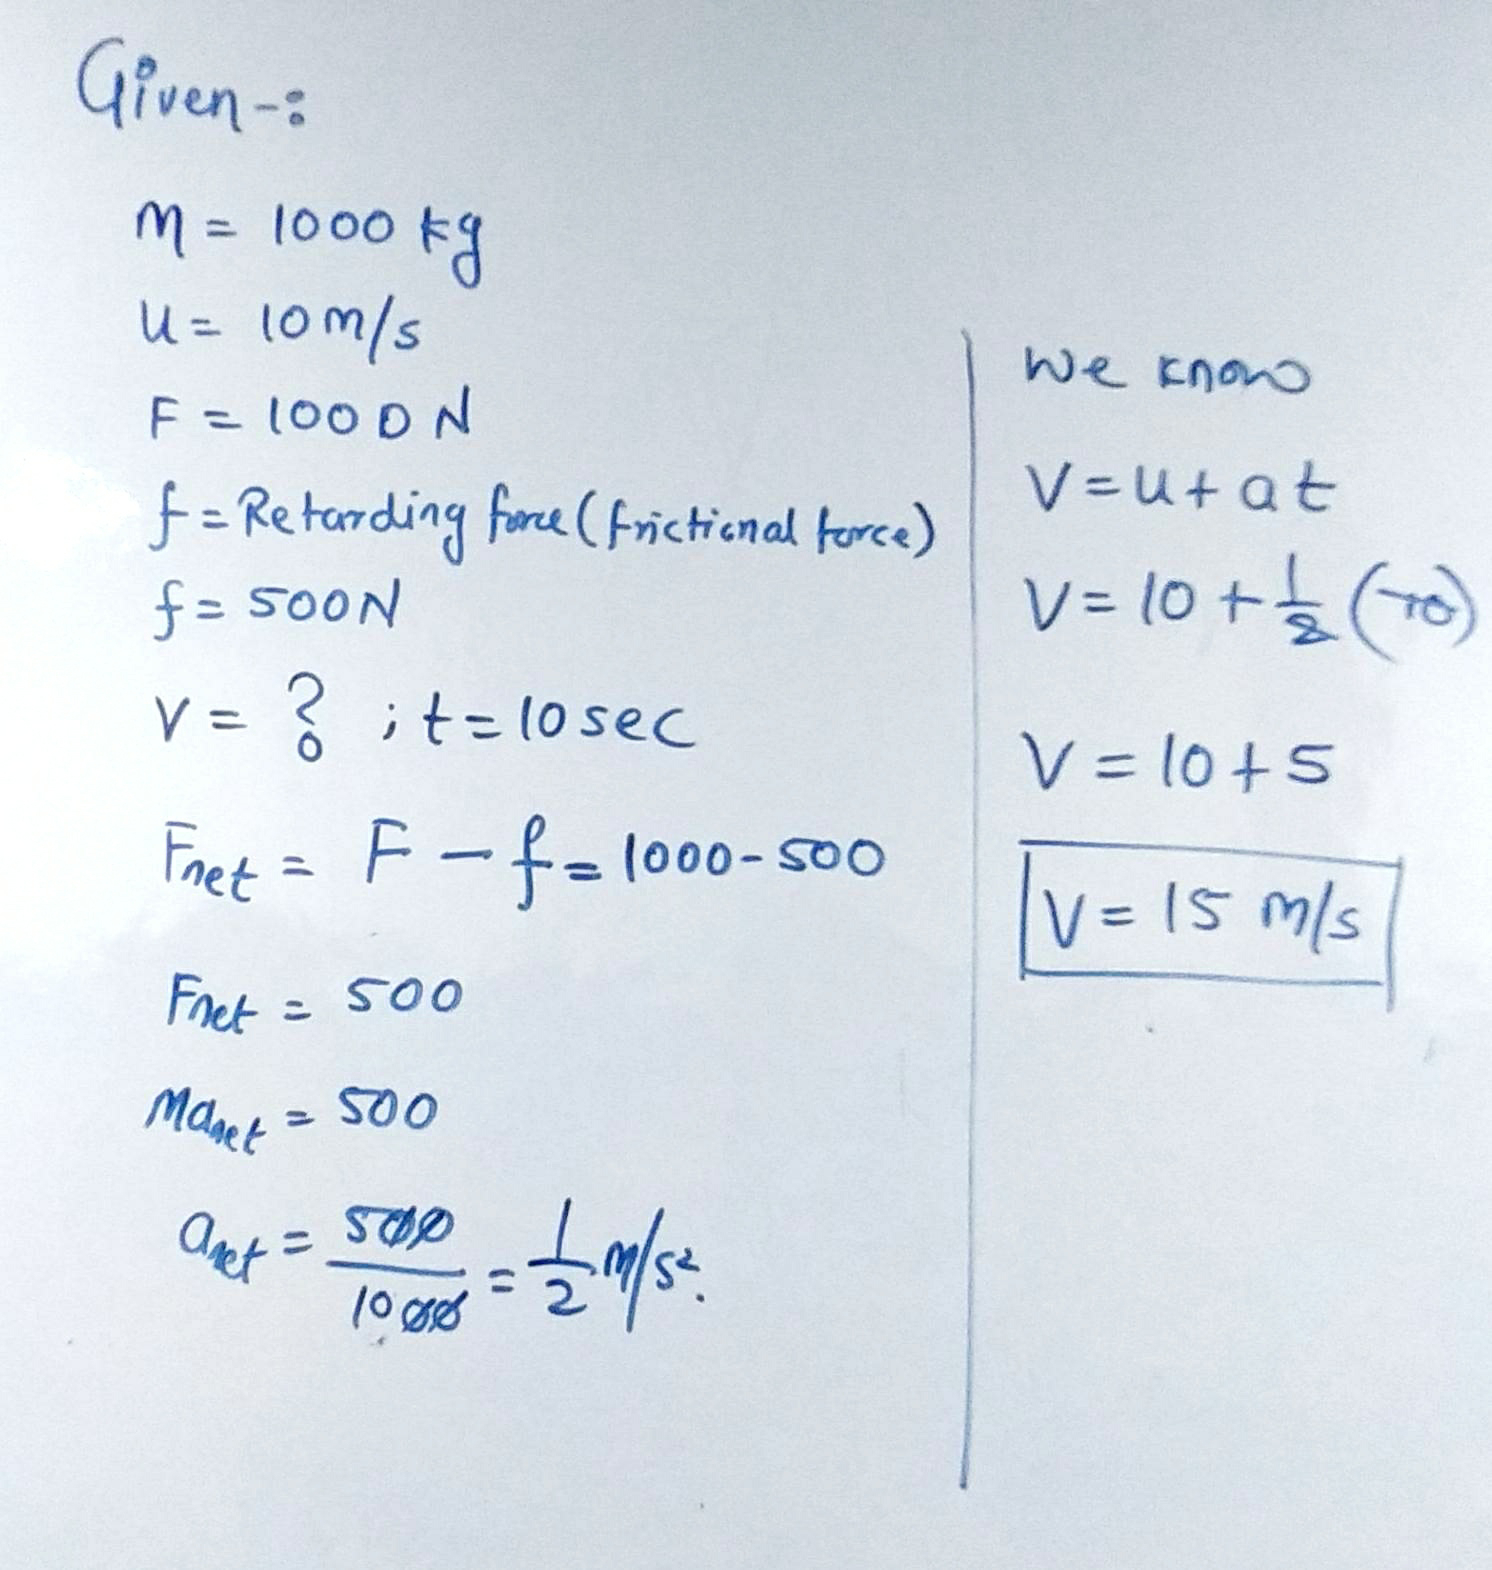 Given-:
M = 1000 kg
U = 10 m/s
F = 1000 N
f = Retarding force (frictional force)
f = 500N
V = ? ; t = 10 sec
Fnet = F - f = 1000-500
Fnet = 500
Manet = 500
anet = 500/1000 = 1/2 m/s².
We know
V = u + at
V = 10 + 1/2 (10)
V = 10 + 5
V = 15 m/s